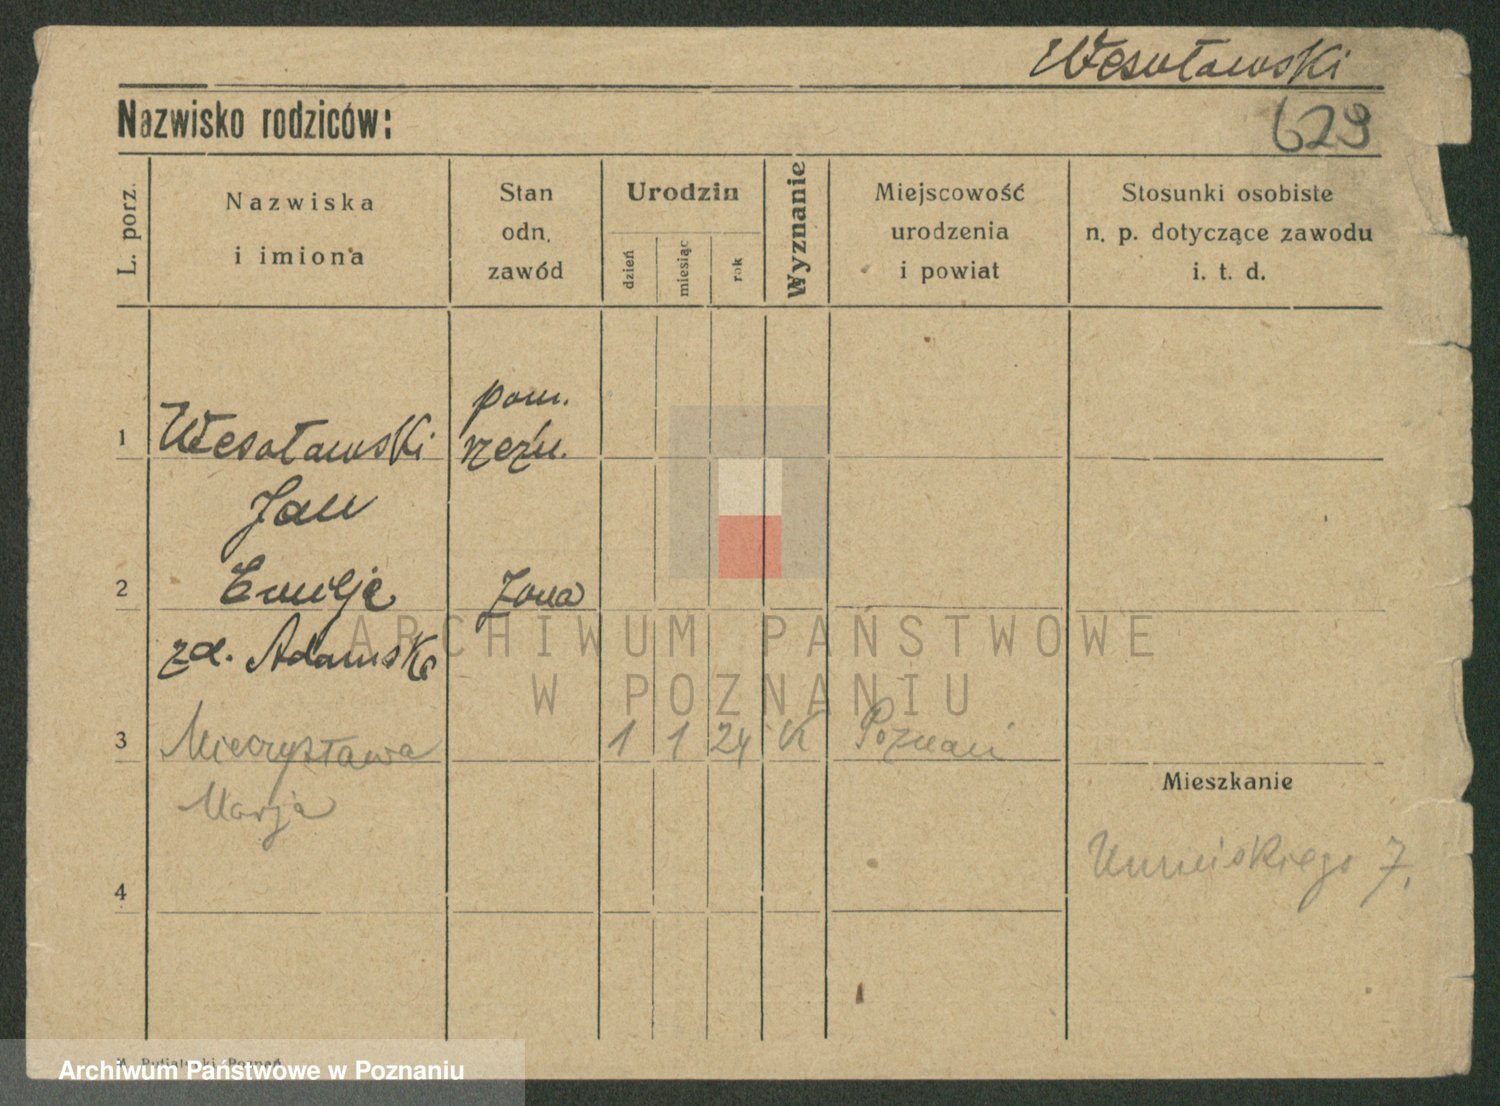 Wesołowski
629
Nazwisko rodziców:
L. porz.
Nazwiska
i imiona
Stan
odn.
zawód
Urodzin
dzień
miesiąc
rok
Wyznanie
Miejscowość
urodzenia
i powiat
Stosunki osobiste
n. p. dotyczące zawodu
i. t. d.
pom.
1 Wesołowski rzeźn.
Jan
2 Emilje Żona
zd. Adamska
ARCHIWUM PAŃSTWOWE
W POZNANIU
3 Mieczysława 1 1 24 K Poznań
Marja
Mieszkanie
Umińskiego 7.
4
Poznań
Archiwum Państwowe w Poznaniu